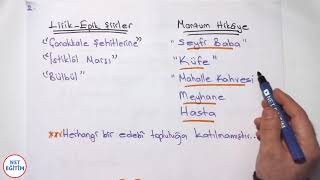 2.
Lirik-Epik Şiirler
"Çanakkale Şehitlerine"
"İstiklöl Marşı
"Bülbül"
Manzum Hikâye
"Seyfi Baba"
"Küfe"
"Mahalle Kahvesi
Meyhane
Hasta
*** Herhangi bir edebî topluluğa katılmamıştır.
NET EĞİTİM
NET EĞİTİM